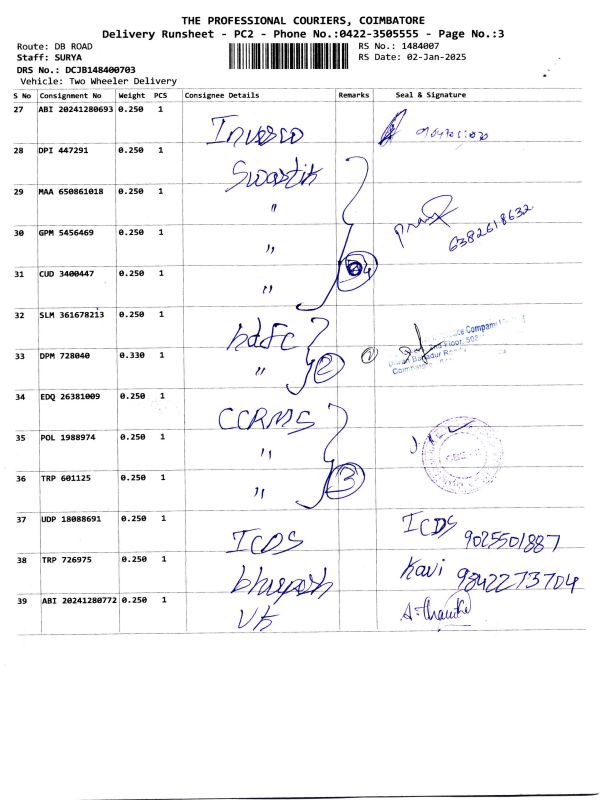 THE PROFESSIONAL COURIERS, COIMBATORE
Delivery Runsheet - PC2 - Phone No.:0422-3505555 - Page No.:3
Route: DB ROAD
RS No.: 1484007
Staff: SURYA
RS Date: 02-Jan-2025
DRS No.: DCJB148400703
Vehicle: Two Wheeler Delivery
S No Consignment No Weight PCS Consignee Details Remarks Seal & Signature
27 ABI 20241280693 0.250 1
28 DPI 447291 0.250 1 Swastik
29 MAA 650861018 0.250 1 "
30 GPM 5456469 0.250 1 " 6382618632
31 CUD 3400447 0.250 1 "
32 SLM 361678213 0.250 1 hdfc
33 DPM 728040 0.330 1 " 2
34 EDQ 26381009 0.250 1 CCRMS
35 POL 1988974 0.250 1 "
36 TRP 601125 0.250 1 " 3
37 UDP 18088691 0.250 1 ICDS ICDS 9025501887
38 TRP 726975 0.250 1 Kavi 9842273704
39 ABI 20241280772 0.250 1